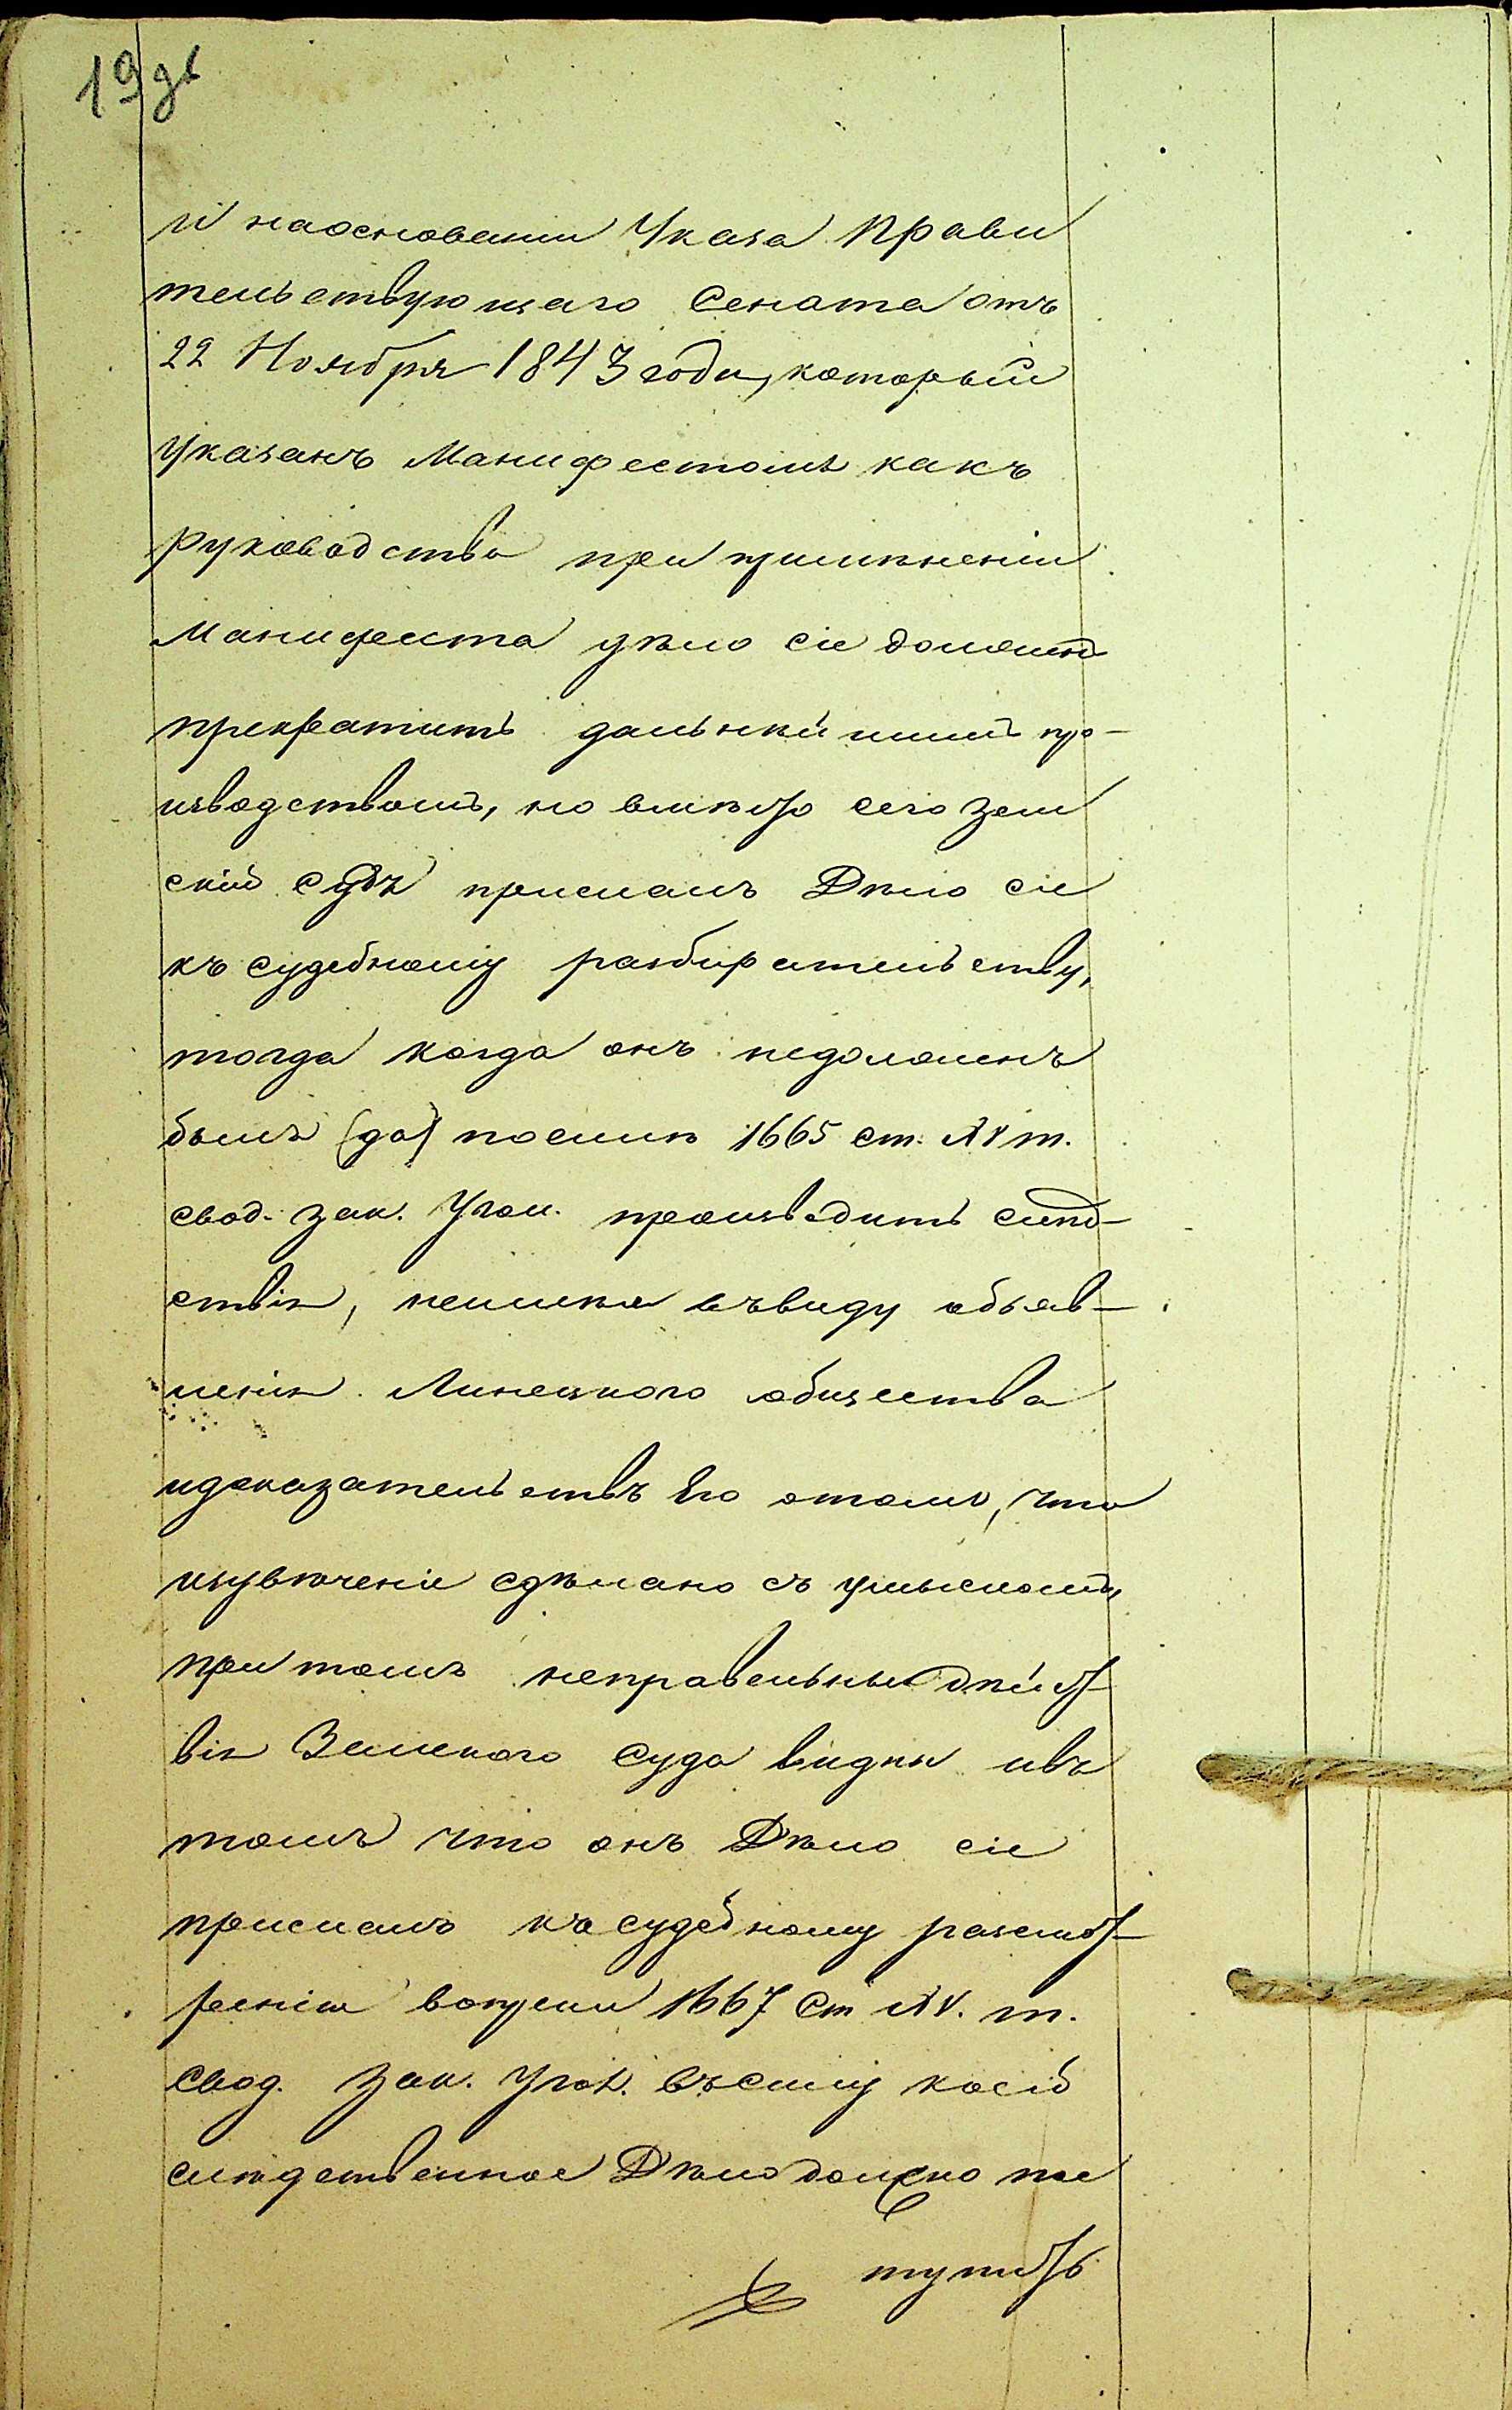 19 об
и наоснованіи Указа Прави
тельствующаго Сената отъ
22 Ноября 1843 года, который
указанъ Манифестомъ какъ
руководство при примѣненіи
Манифеста дѣло сіе должно
прекратить дальнѣйшимъ про-
изводствомъ, но вмѣсто сего зем
скій судъ прислалъ Дѣло сіе
къ судебному разбирательству,
тогда когда онъ недолженъ
былъ (да) посилѣ 1665 ст. XV т.
свод. зак. Угол. производить слѣд-
ствія, неимѣя въвиду объяв-
ленія Линецкого общества
идоказательствъ Его отомъ, что
изувѣченіе сдѣлано съ умысломъ,
притомъ неправельныя дѣйст-
вія Земского Суда видны ивъ
томъ что онъ Дѣло сіе
прислалъ къ судебному разсмот-
ренію вопреки 1667 Ст XV. т.
свод. зак. Угол. въсилу коей
слѣдственное Дѣло должно пос
тупить